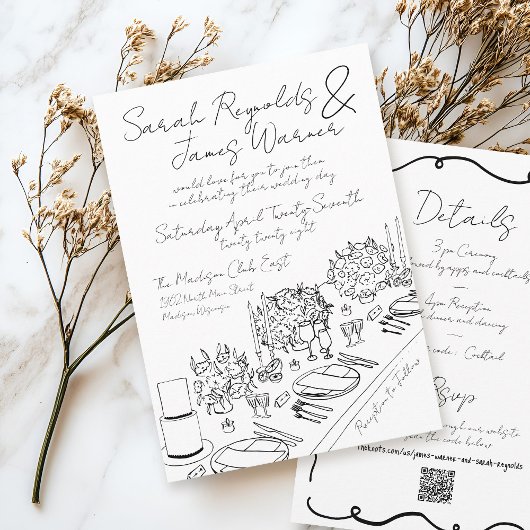 Sarah Reynolds &
James Warner
would love for you to join them
in celebrating their wedding day
Saturday April Twenty Seventh
twenty twenty eight
The Madison Club East
North Main Street
Madison Wisconsin
Reception to Follow
Details
3 pm Ceremony
by apps and cocktails
4pm Reception
dinner and dancing
code: Cocktail
our website
the code below
theknots.com/us/james-warner-and-sarah-reynolds